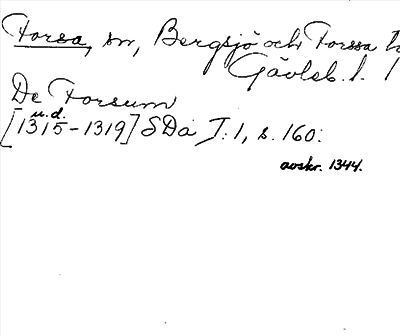 Forsa, sn, Bergsjö och Forssa
Gävleb. l.
De Forsum
u.d.
[1315-1319] SDa T. 1, s. 160.
avskr. 1344.